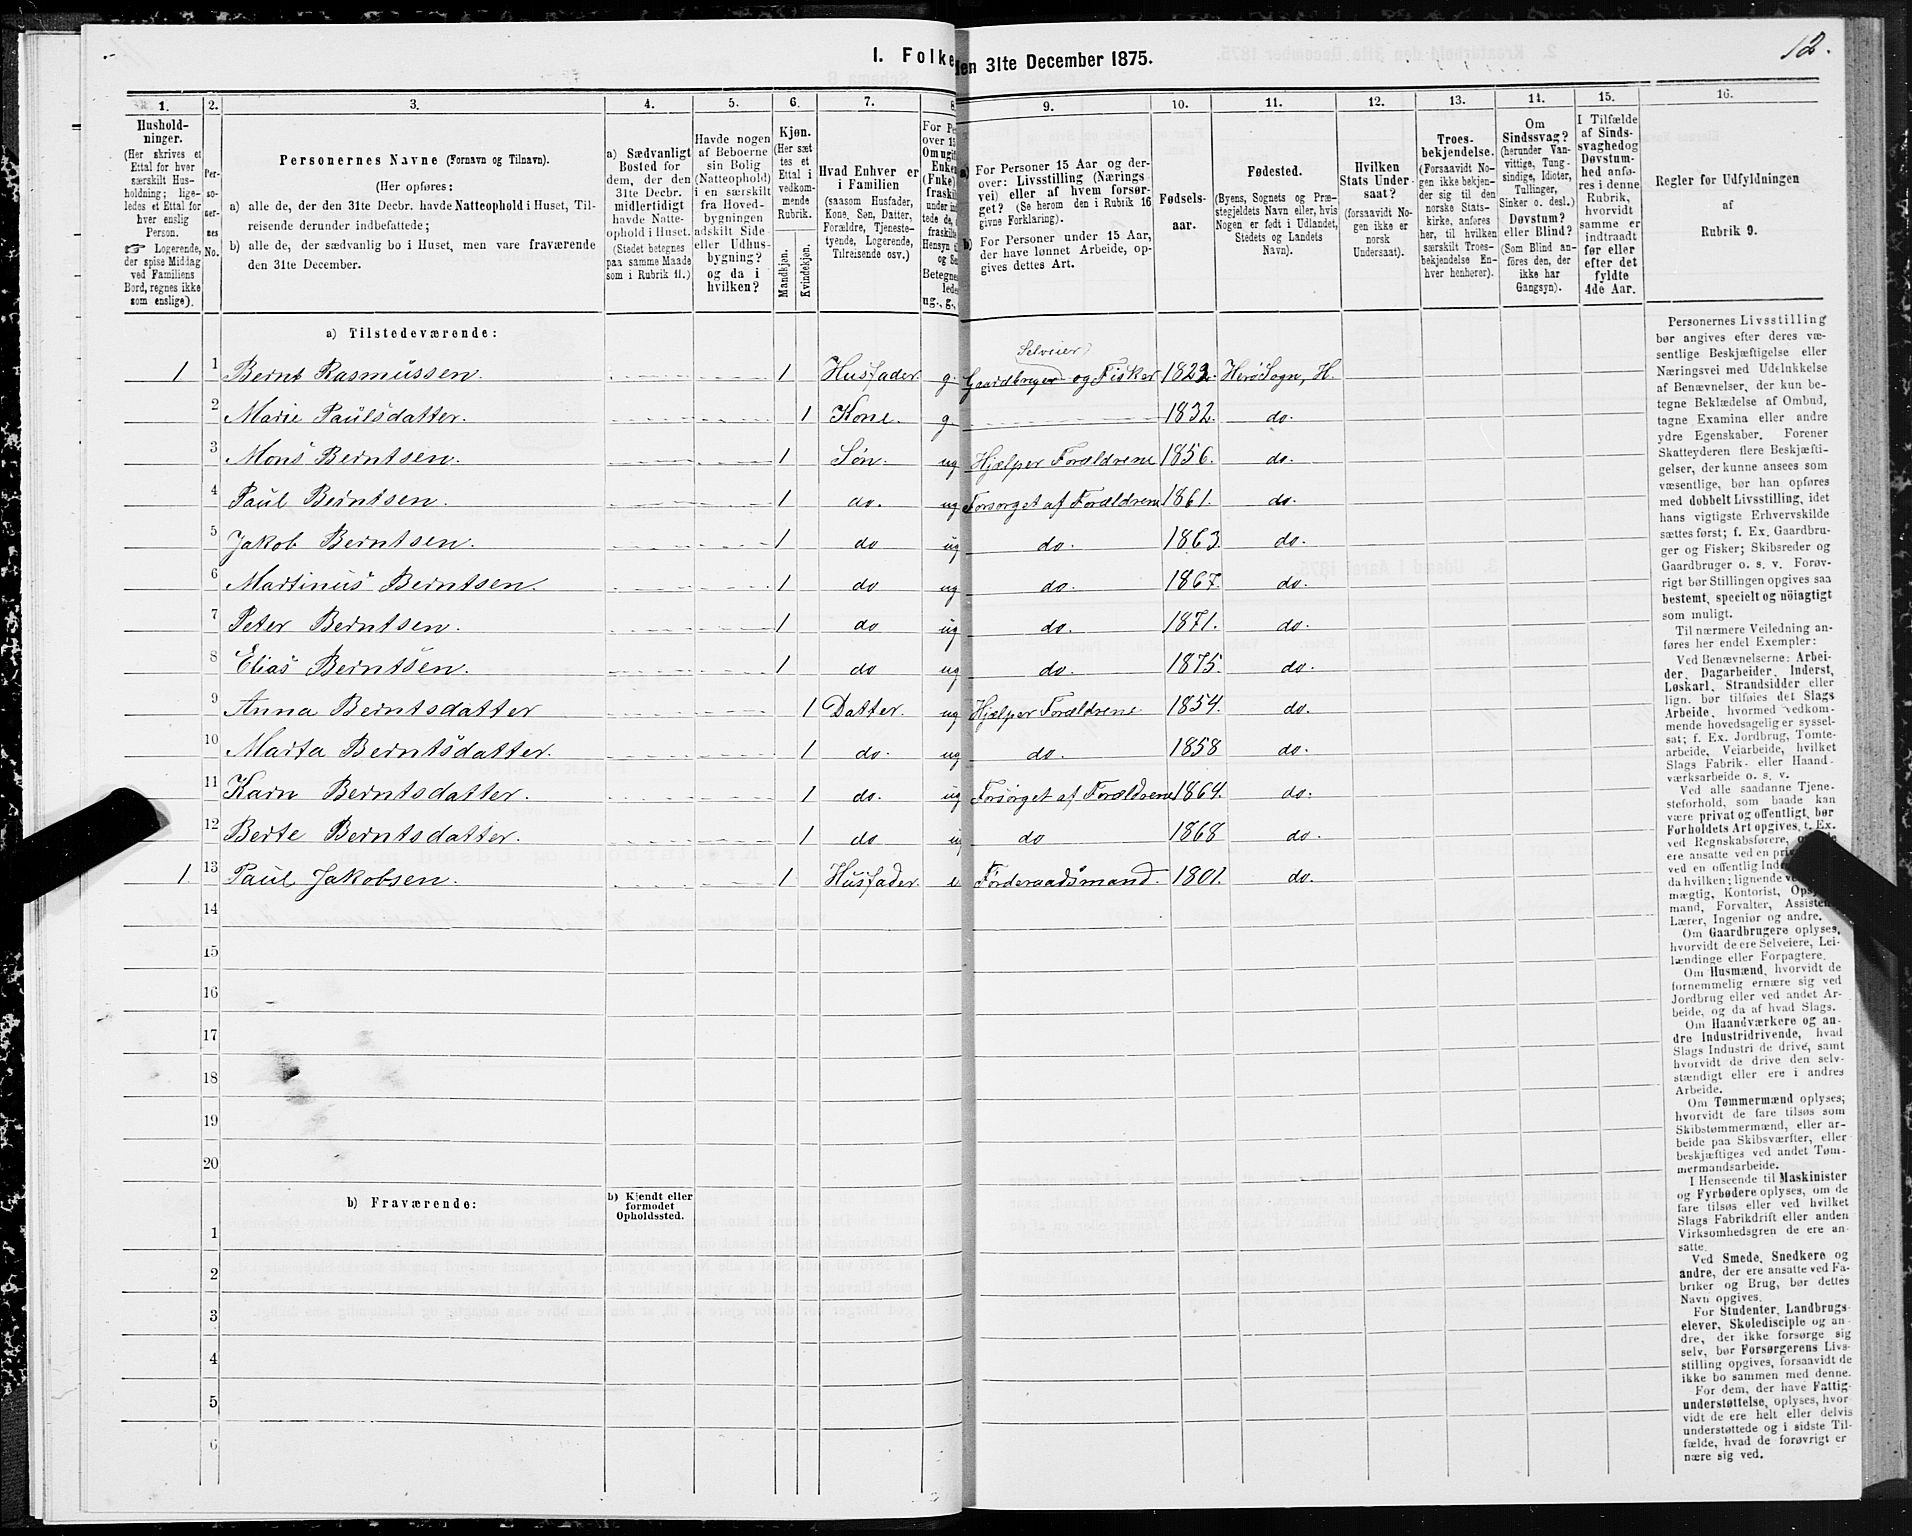 12.
1. Folke den 31te December 1875.
1. 2. 3. 4. 5. 6. 7. 8. 9. 10. 11. 12. 13. 14. 15. 16.
Hushold-
ninger.
(Her skrives et
Ettal for hver
særskilt Hus-
holdning; lige-
ledes et Ettal for
hver enslig
Person.
☞ Logerende,
der spise Middag
ved Familiens
Bord, regnes ikke
som enslige).
Per-
so-
ner-
nes
No.
Personernes Navne (Fornavn og Tilnavn).
(Her opføres:
a) alle de, der den 31te Decbr. havde Natteophold i Huset, Til-
reisende derunder indbefattede;
b) alle de, der sædvanlig bo i Huset, men vare fraværende
den 31te December.
a) Sædvanligt
Bosted for
dem, der den
31te Decbr.
midlertidigt
havde Natte-
ophold i Huset.
(Stedet betegnes
paa samme Maade
som i Rubrik 11.)
Havde nogen
af Beboerne
sin Bolig
(Natteophold)
i en særskilt
fra Hoved-
bygningen
adskilt Side-
eller Udhus-
bygning?
og da i
hvilken?
Kjøn.
(Her sæt-
tes et
Ettal i
vedkom-
mende
Rubrik.
Mandkjøn.
Kvindekjøn.
Hvad Enhver er
i Familien
(saasom Husfader,
Kone, Søn, Datter,
Forældre, Tjeneste-
tyende, Logerende,
Tilreisende osv.)
For Pe
over 15
Om ugift
Enke
(Fnke)
fraskil
under in
tede de,
fraskilte
Hensyn t
og Se
Betegne
lede
ug., g.,
a) For Personer 15 Aar og der-
over: Livsstilling (Nærings
vei) eller af hvem forsør-
get? (Se herom den i Rubrik 16
givne Forklaring).
b) For Personer under 15 Aar,
der have lønnet Arbeide, op-
gives dettes Art.
Fødsels-
aar.
Fødested.
(Byens, Sognets og Præ-
stegjeldets Navn eller, hvis
Nogen er født i Udlandet,
Stedets og Landets
Navn).
Hvilken
Stats Under-
saat?
(forsaavidt No-
gen ikke er
norsk
Undersaat).
Troes-
bekjendelse.
(Forsaavidt No-
gen ikke bekjen-
der sig til den
norske Stats-
kirke, anføres
her, til hvilken
særskilt Troes-
bekjendelse En-
hver henhører).
Om
Sindssvag?
(herunder Van-
vittige, Tung-
sindige, Idioter,
Tullinger,
Sinker o. desl.)
Døvstum?
eller Blind?
(Som Blind an-
føres den, der
ikke har
Gangsyn).
I Tilfælde
af Sinds-
svaghed og
Døvstum-
hed anfø-
res i denne
Rubrik,
hvorvidt
samme er
indtraadt
før eller
efter det
fyldte
4de Aar.
Regler for Udfyldningen
af
Rubrik 9.
a) Tilstedeværende:
Selveier
1 1 Bernt Rasmussen. 1 Husfader. g. Gaardbruger og Fisker 1822. Herø Sogn, H.
2 Marie Paulsdatter. 1 Kone. g. 1832. do.
3 Mons Berntsen. 1 Søn. ug Hjælper Forældrene 1856. do.
4 Paul Berntsen. 1 do. ug Forsørget af Forældrene 1861. do.
5 Jakob Berntsen. 1 do ug do. 1863. do.
6 Martinus Berntsen. 1 do ug do. 1867. do.
7 Peter Berntsen. 1 do ug do. 1871. do.
8 Elias Berntsen. 1 do ug do. 1875. do.
9 Anna Berntsdatter 1 Datter. ug Hjælper Forældrene 1854. do.
10 Marta Berntsdatter. 1 do. ug do. 1858 do.
11 Karn Berntsdatter. 1 do. ug Forsørget af Forældrene 1864. do.
12 Berte Berntsdatter. 1 do u do 1868 do.
1. 13 Paul Jakobsen. 1 Husfader. e Forderaadsmand. 1801. do.
14
15
16
17
18
19
20
b) Fraværende:
b) Kjendt eller
formodet
Opholdssted.
1
2
3
4
5
6
Personernes Livsstilling
bør angives efter deres væ-
sentlige Beskjæftigelse eller
Næringsvei med Udelukkelse
af Benævnelser, der kun be-
tegne Beklædelse af Ombud,
tagne Examina eller andre
ydre Egenskaber. Forener
Skatteyderen flere Beskjæfti-
gelser, der kunne ansees som
væsentlige, bør han opføres
med dobbelt Livsstilling, idet
hans vigtigste Erhvervskilde
sættes først; f. Ex. Gaardbru-
ger og Fisker; Skibsreder og
Gaardbruger o. s. v. Forøv-
rigt bør Stillingen opgives saa
bestemt, specielt og nöiagtigt
som muligt.
Til nærmere Veiledning an-
føres her endel Exempler:
Ved Benævnelserne: Arbei-
der, Dagarbeider, Inderst,
Løskarl, Strandsidder eller
lign. bør tilføies det Slags
Arbeide, hvormed vedkom-
mende hovedsagelig er syssel-
sat; f. Ex. Jordbrug, Tomte-
arbeide, Veiarbeide, hvilket
Slags Fabrik- eller Haand-
værksarbeide o. s. v.
Ved alle saadanne Tjene-
steforhold, som baade kan
være privat og offentligt, bør
Forholdets Art opgives, t. Ex.
ved Regnskabsførere,
ere ansatte ved en
ved en offentlig
da hvilken; lignende
mægtig, Kontorist,
mand, Forvalter, Assistent,
Lærer, Ingeniør og andre.
Om Gaardbrugere oplyses,
hvorvidt de ere Selveiere, Lei-
lændinge eller Forpagtere.
Om Husmænd, hvorvidt de
fornemmelig ernære sig ved
Jordbrug eller ved andet Ar-
beide, og da af hvad Slags.
Om Haandværkere og an-
dre Industridrivende, hvad
Slags Industri de drive, samt
hvorvidt de drive den selv-
stændigt eller ere i andres
Arbeide.
Om Tømmermænd oplyses;
hvorvidt de fare tilsøs som
Skibstømmermænd, eller ar-
beide paa Skibsværfter, eller
beskjæftiges ved andet Tøm-
mermandsarbeide.
I Henseende til Maskinister
og Fyrbødere oplyses, om de
fare tilsøs eller ved hvilket
Slags Fabrikdrift eller anden
Virksomhedsgren de ere an-
satte.
Ved Smede, Snedkere og
andre, der ere ansatte ved Fa-
briker og Brug, bør dettes
Navn opgives.
For Studenter, Landbrugs-
elever, Skoledisciple og an-
dre, der ikke forsørge sig
selv, bør Forsørgerens Livs-
stilling opgives, forsaavidt de
ikke bo sammen med denne.
For dem, der have Fattig-
understøttelse, oplyses, hvor-
vidt de ere helt eller delvis
understøttede og i sidste Til-
fælde, hvad de forøvrigt er
nære sig ved.